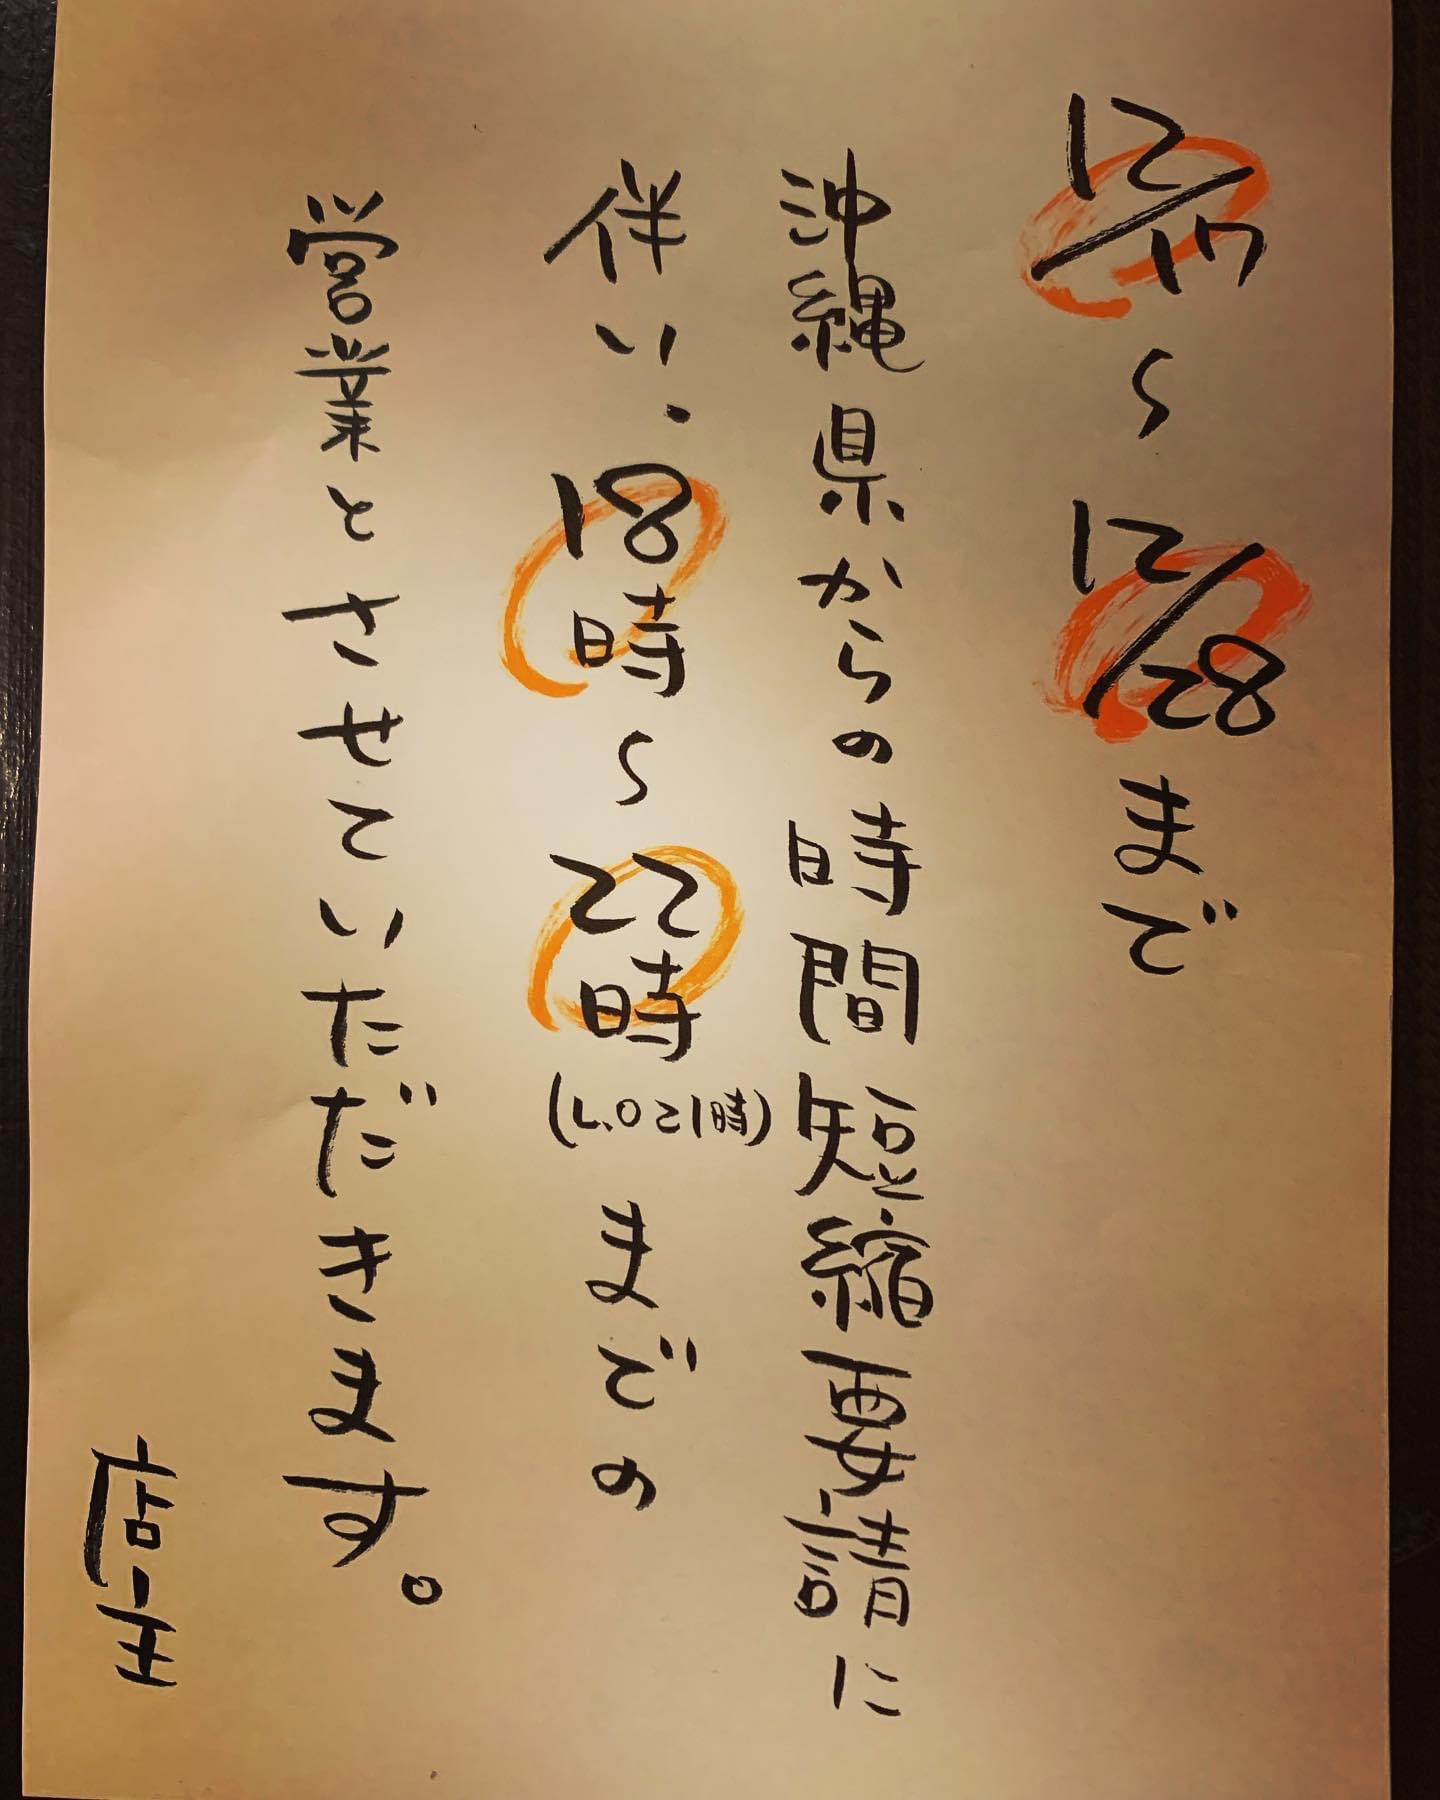 12/17〜12/28まで
沖縄県からの時間短縮要請に
伴い、18時〜22時(L.O 21時)までの
営業とさせていただきます。
店主